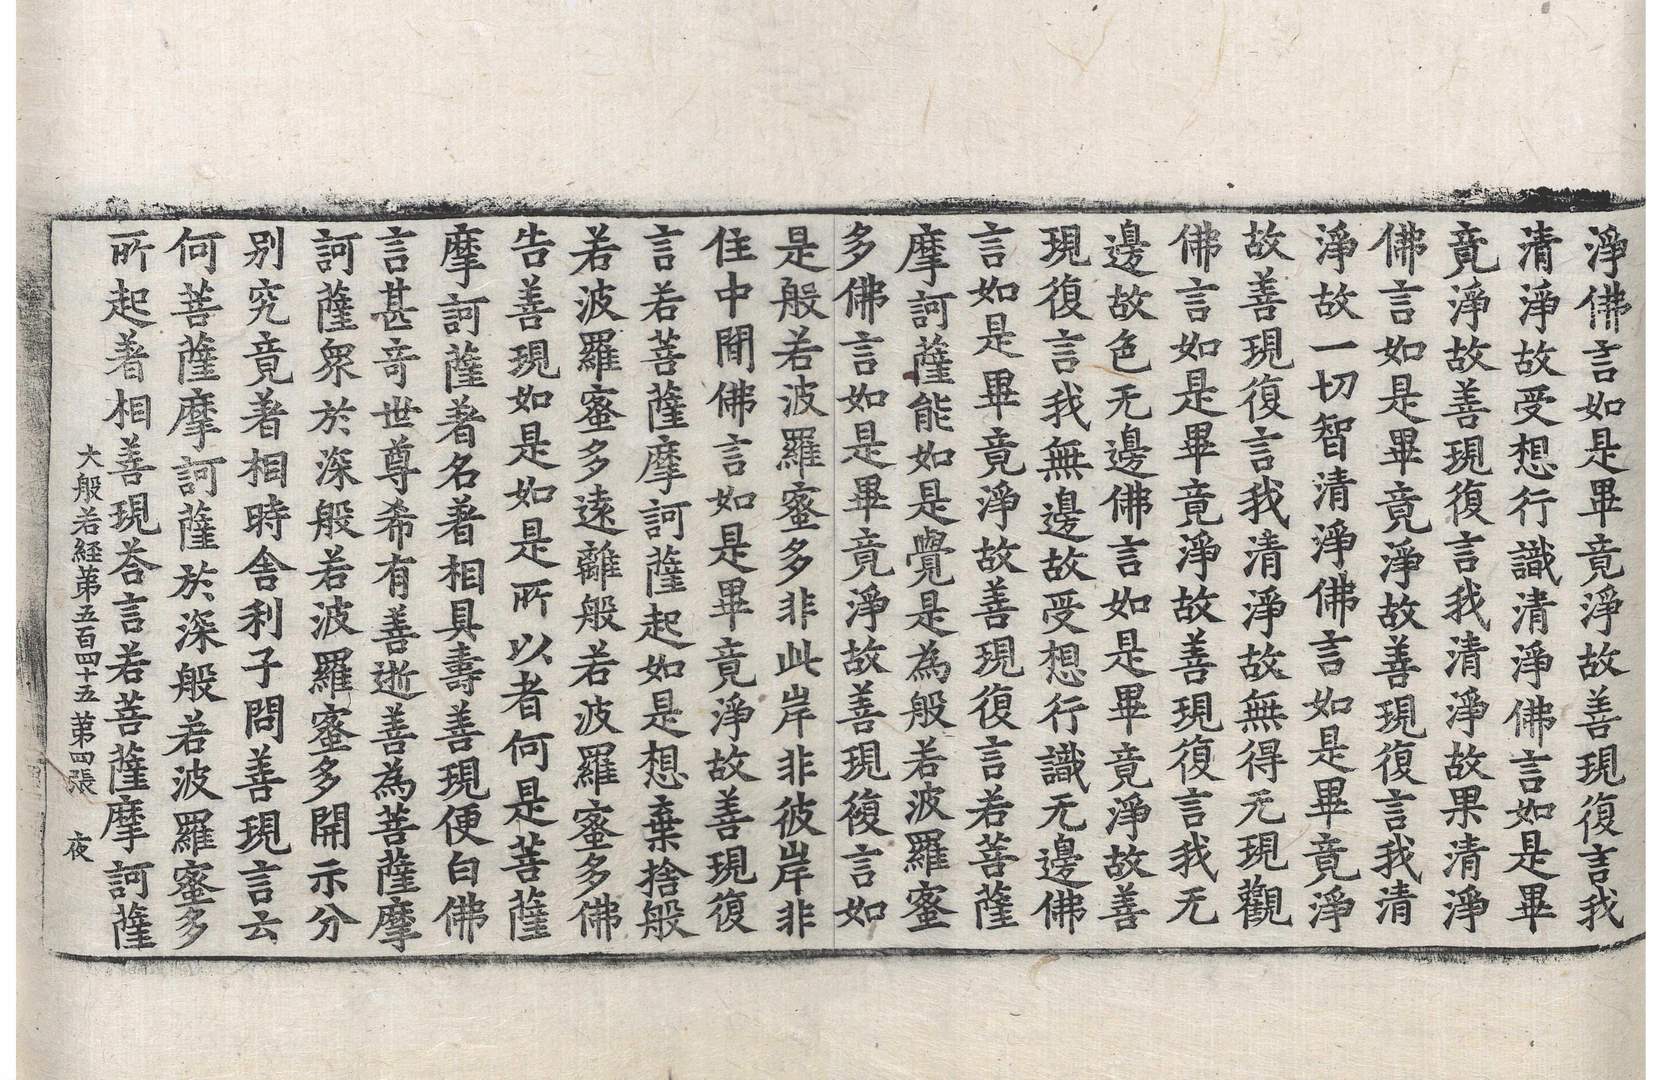 淨佛言如是畢竟淨故善現復言我
清淨故受想行識清淨佛言如是畢
竟淨故善現復言我清淨故果清淨
佛言如是畢竟淨故善現復言我清
淨故一切智清淨佛言如是畢竟淨
故善現復言我清淨故無得无現觀
佛言如是畢竟淨故善現復言我无
邊故色无邊佛言如是畢竟淨故善
現復言我無邊故受想行識无邊佛
言如是畢竟淨故善現復言若菩薩
摩訶薩能如是覺是為般若波羅蜜
多佛言如是畢竟淨故善現復言如
是般若波羅蜜多非此岸非彼岸非
住中閒佛言如是畢竟淨故善現復
言若菩薩摩訶薩起如是想棄捨般
若波羅蜜多遠離般若波羅蜜多佛
告善現如是如是所以者何是菩薩
摩訶薩著名著相具壽善現便白佛
言甚奇世尊希有善逝善為菩薩摩
訶薩衆於深般若波羅蜜多開示分
别究竟著相時舍利子問善現言云
何菩薩摩訶薩於深般若波羅蜜多
所起著相善現荅言若菩薩摩訶薩
大般若経苐五百四十五 苐四張 夜